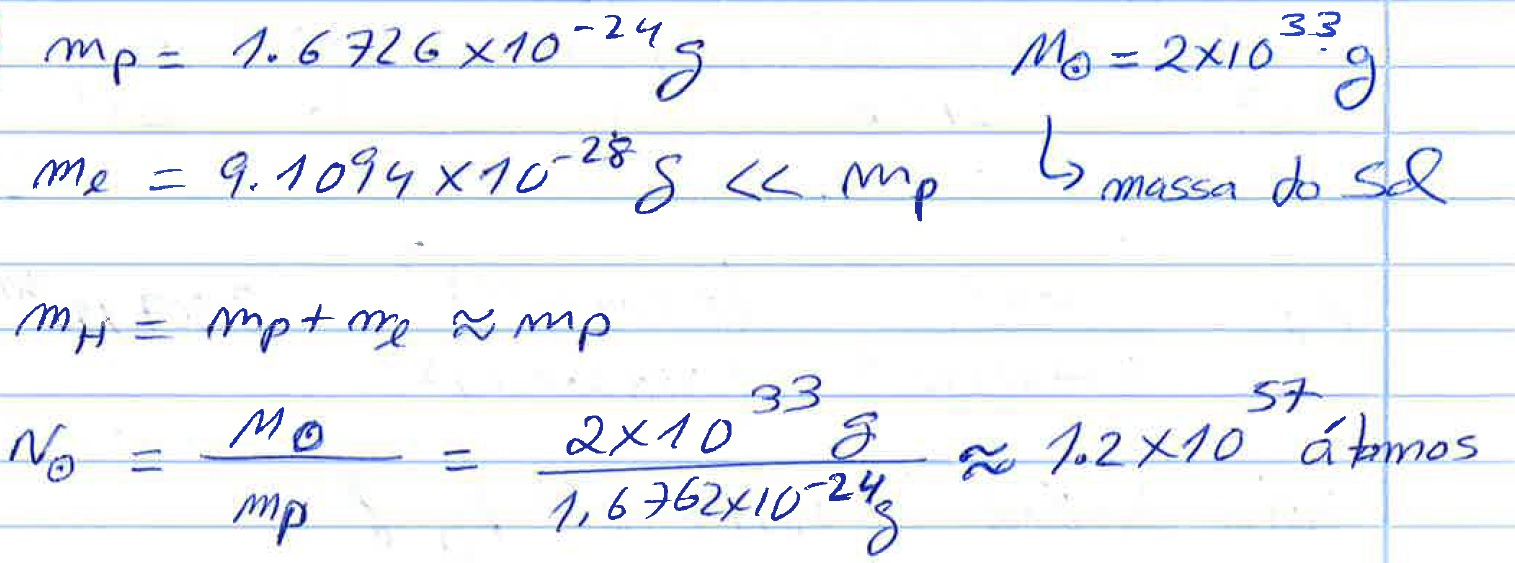 mp = 1.6726 × 10⁻²⁴ g M⊙ = 2×10³³ g
me = 9.1094 × 10⁻²⁸ g << mp ↳ massa do Sol
mH = mp + me ≈ mp
N⊙ = M⊙/mp = 2×10³³ g/1,6762×10⁻²⁴ g ≈ 1.2×10⁵⁷ átomos